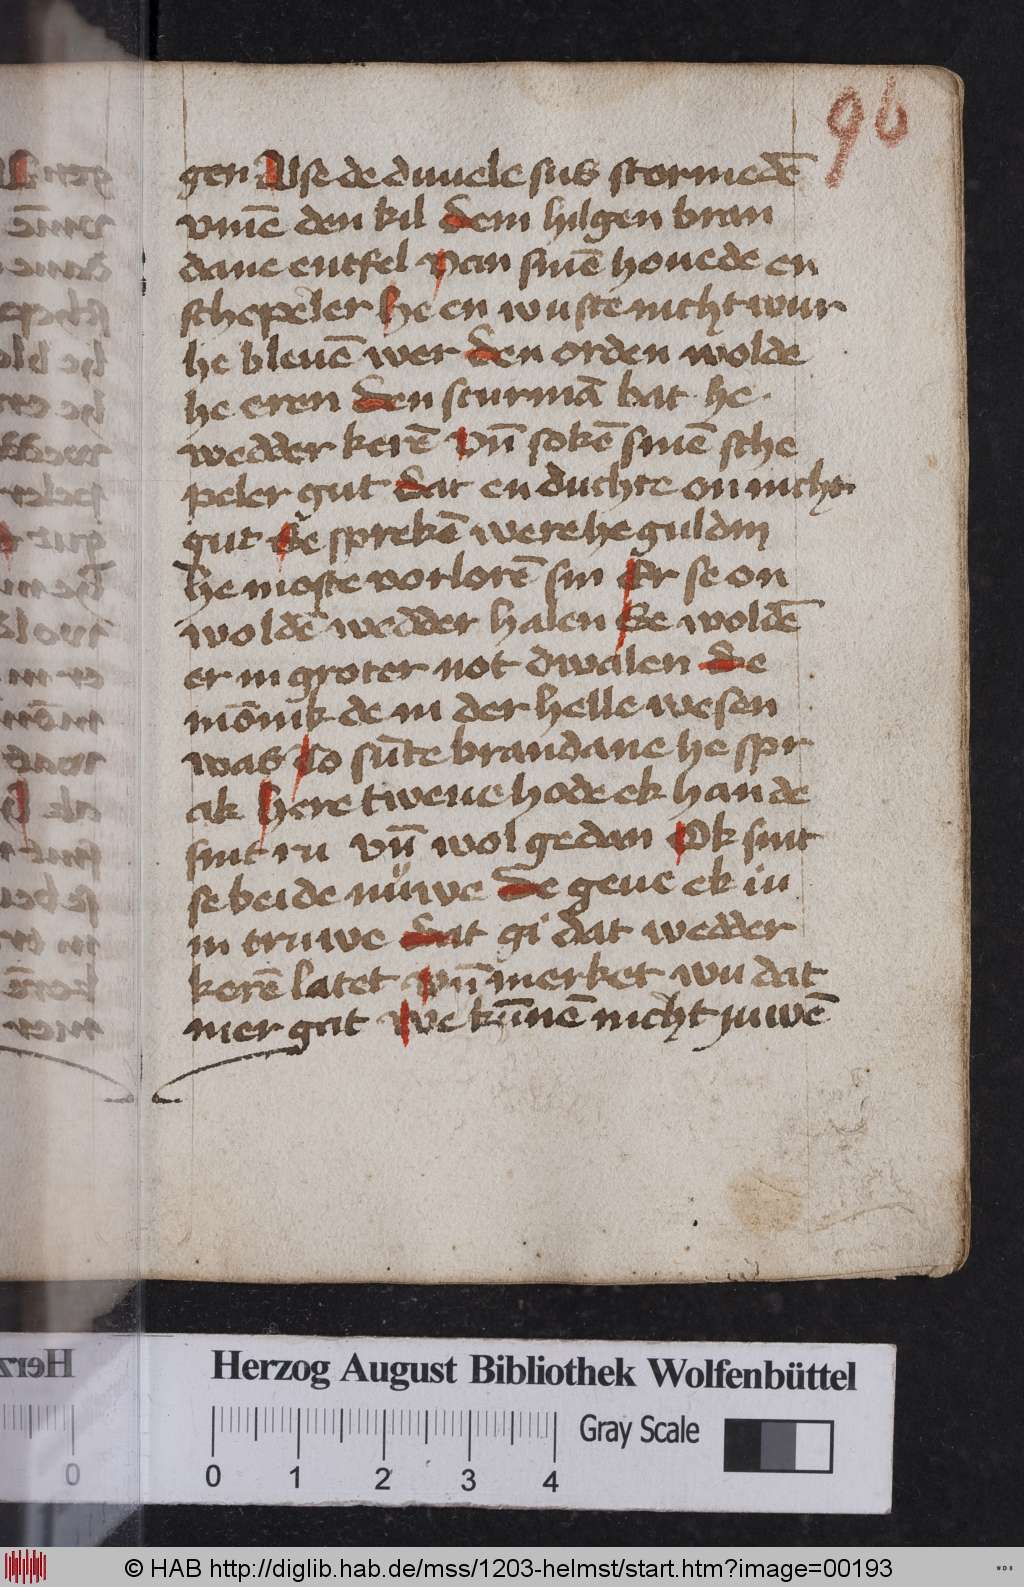 96
gen Alse de duuele sus stormedē
vm̄e den kil dem hilgen bran
dane entfel van sinē houede en
schepeler he en wuste nicht wur
he bleuē wer den orden wolde
he eren den sturmā bat he
wedder kerē vn̄ sokē sinē sche
peler gut dat en duchte on nicht
gut Se sprekē were he guldin
he moste vorlorē sin Er se on
woldē wedder halen Se woldē
er in groter not dwalen de
mōnik de in der helle wesen
was To sūte brandane he spr
ak here tweue hode ek han de
sint ru vn̄ wol gedan Ok sint
se beide nuwe de geue ek iu
in truwe dat gi dat wedder
kerē latet vn̄ merket wu dat
mer gat We kūnē nicht juwē
Herzog August Bibliothek Wolfenbüttel
Gray Scale
0 1 2 3 4
© HAB http://diglib.hab.de/mss/1203-helmst/start.htm?image=00193